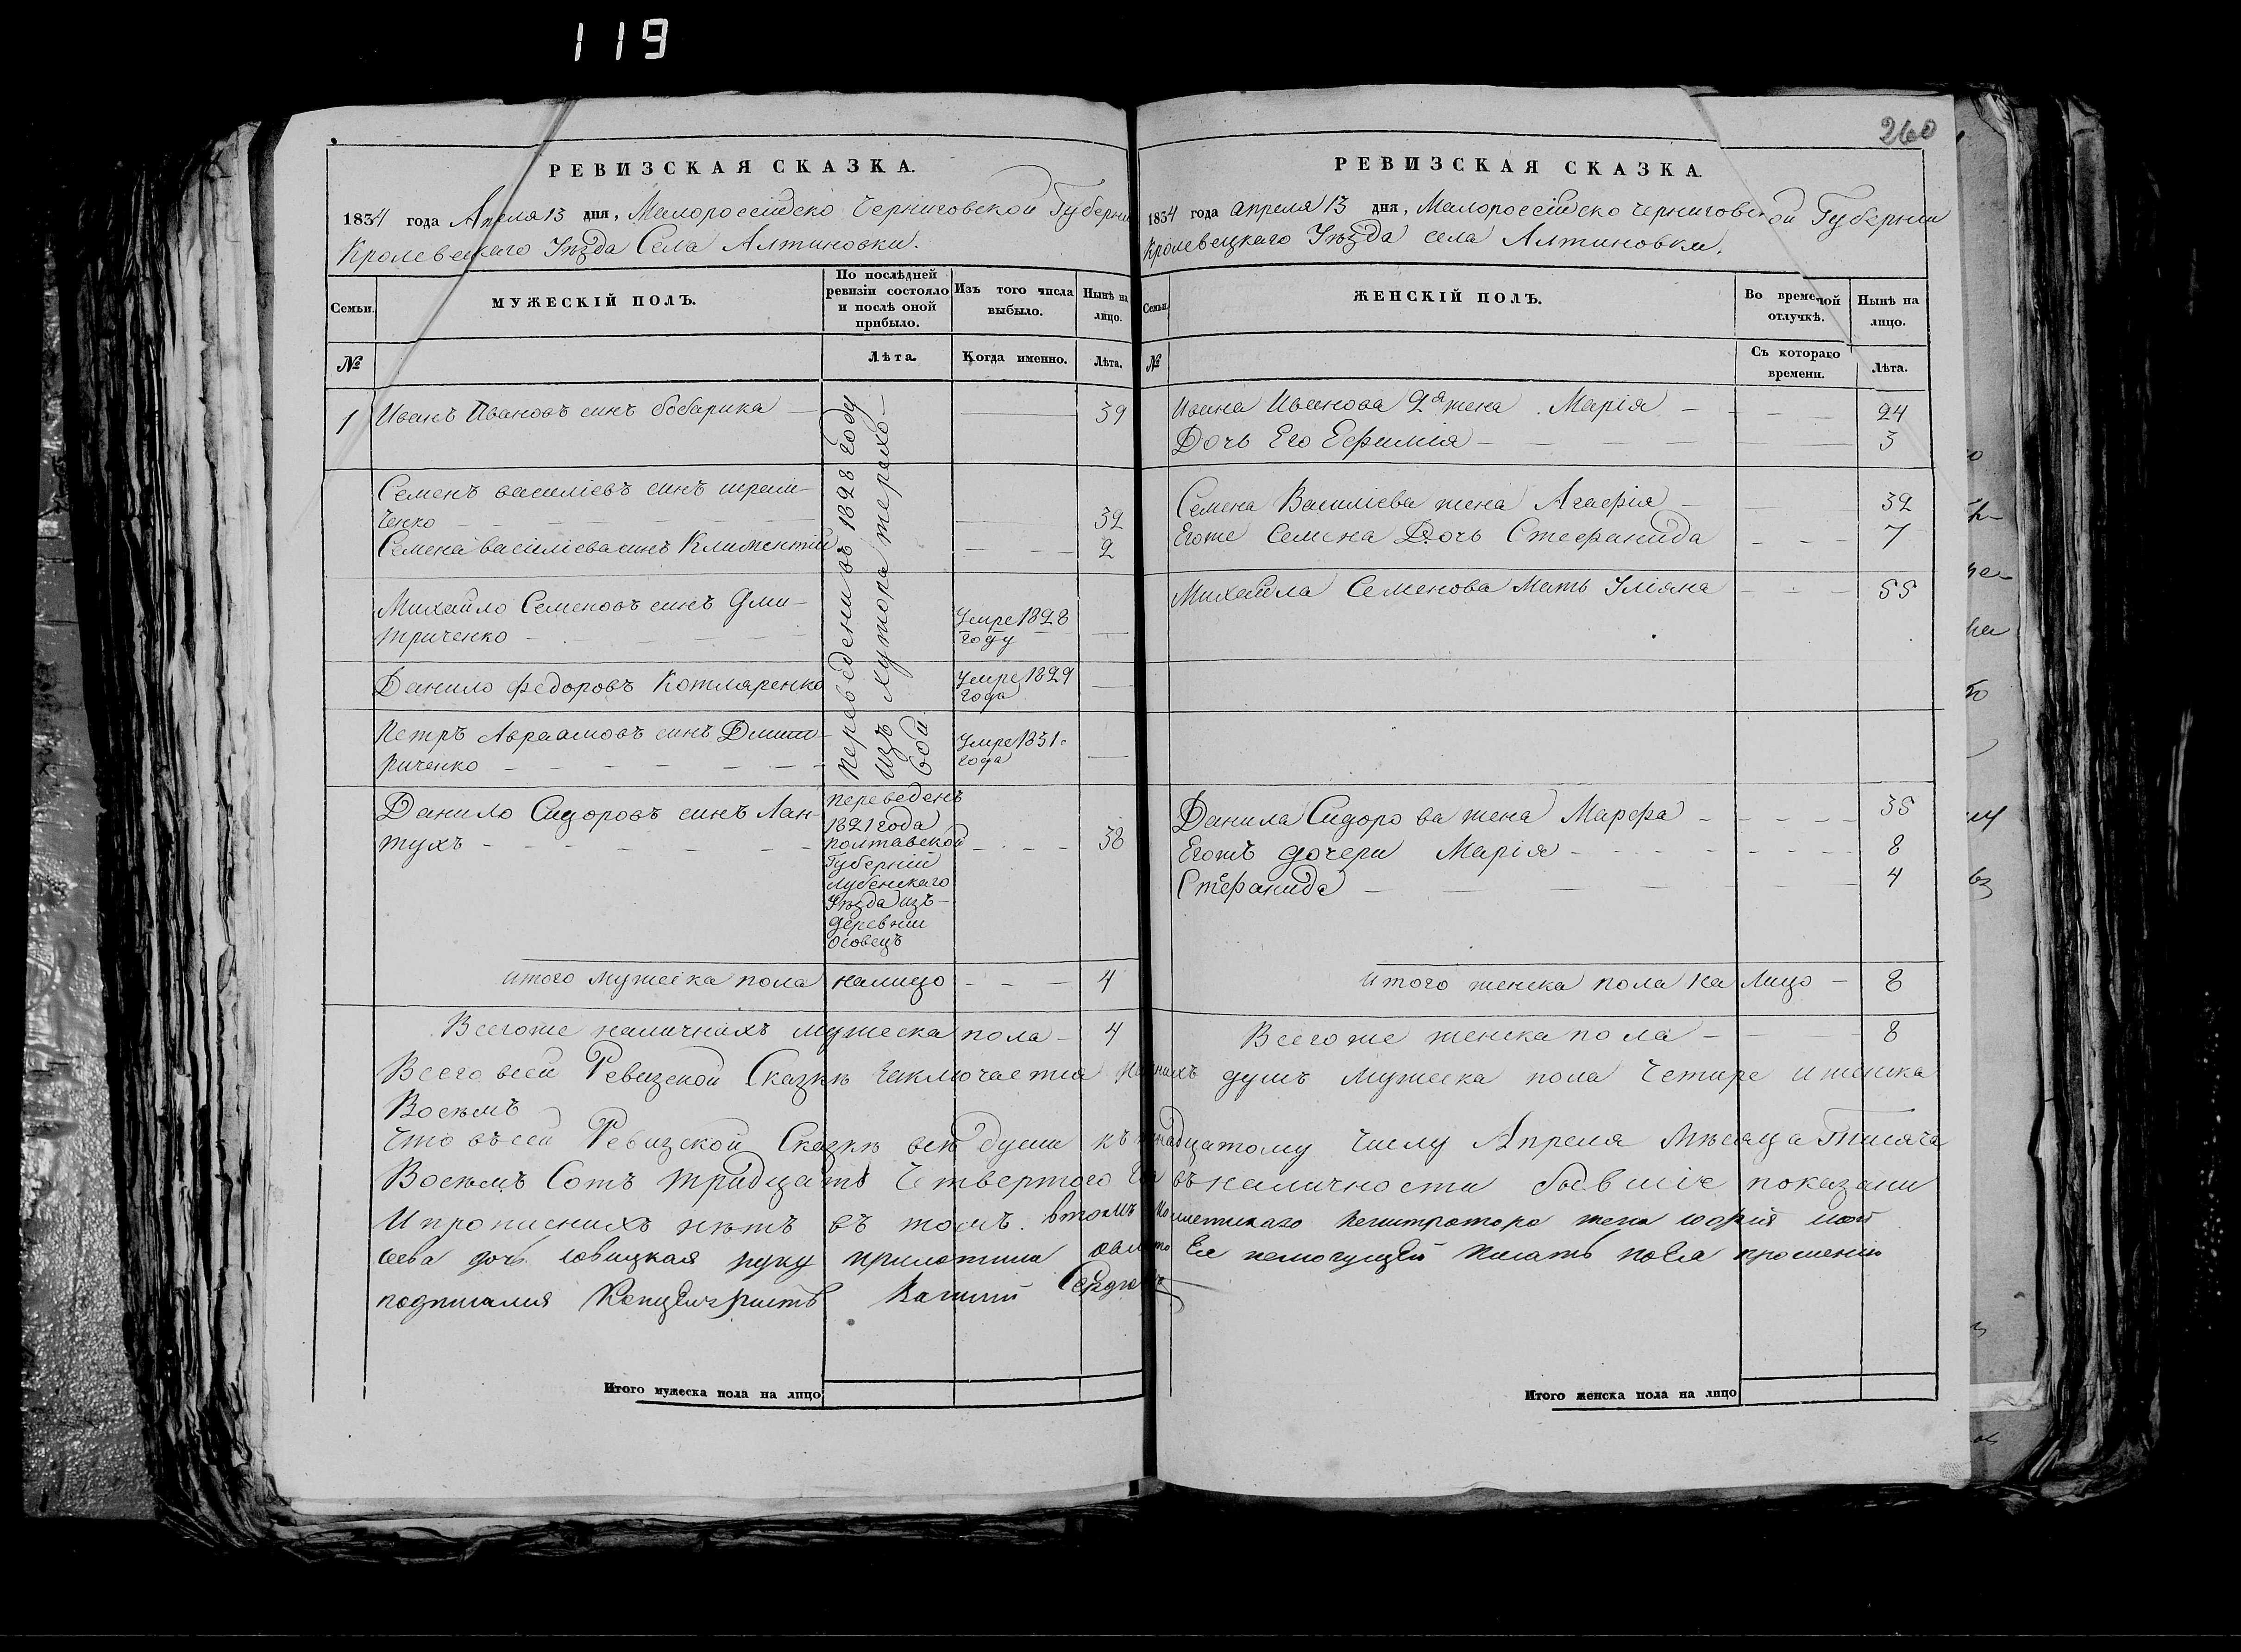 119
260
РЕВИЗСКАЯ СКАЗКА.
1834 года Апреля 13 дня, Малороссійско Черниговской Губерни
Кролевецкаго Уѣзда Села Алтиновки.
Семьи.
МУЖЕСКІЙ ПОЛЪ.
По послѣдней ревизіи состояло и послѣ оной прибыло.
Изъ того числа выбыло.
Нынѣ на лицо.
№
Лѣта.
Когда именно.
Лѣта.
1 Иванъ Ивановъ синъ бобарика 39
Семенъ василіевъ синъ
ченко 32
Семена василіева синъ Климентій 2
Михайло Семеновъ синъ Дми-
триченко
Умре 1828
году
Данило федоровъ Котляренко
Умре 1829
года
Петръ Авраамовъ синъ Дмит-
риченко
Умре 1831
года
переведени въ 1828 году
изъ хутора терахо-
вой
Данило Сидоровъ синъ Лан-
тухъ 38
переведенъ
1821 года
полтавской
Губерніи
лубенскаго
Уѣзда изъ
деревни
осовецъ
итого мужеска пола налицо 4
Всегоже наличнихъ мужеска пола 4
РЕВИЗСКАЯ СКАЗКА.
1834 года апреля 13 дня, Малороссійско Черниговской Губернии
Кролевецкаго Уѣзда села Алтиновки.
Семьи.
ЖЕНСКІЙ ПОЛЪ.
Во временной отлучкѣ.
Нынѣ на лицо.
№
Съ котораго времени.
Лѣта.
Ивана Иванова 2я жена Марія 24
Дочь Его Ефимія 3
Семена Василіева жена Агафія 32
Егоже Семена Дочь Стефанида 7
Михайла Семенова Мать Уліяна 55
Данила Сидорова жена Марфа 35
Егожъ дочери Марія 8
Стефанида 4
итого женска пола на Лицо 8
Всегоже женска пола 8
Всего всей Ревизской Сказкѣ Заключается душъ мужеска пола Четире и женска
Восѣмъ
Что въ сей Ревизской Сказкѣ всѣ души къ Числу Апреля Мѣсяца Тисяча
Восѣмъ Сотъ тридцать Четвертого въ наличности бывшіе показани
И прописнихъ нѣтъ въ томъ. втомъ жена
дочь руку приложила Ея немогущей писать по Ея прошению
подписался Канцеляристъ
Итого мужеска пола на лицо
Итого женска пола на лицо